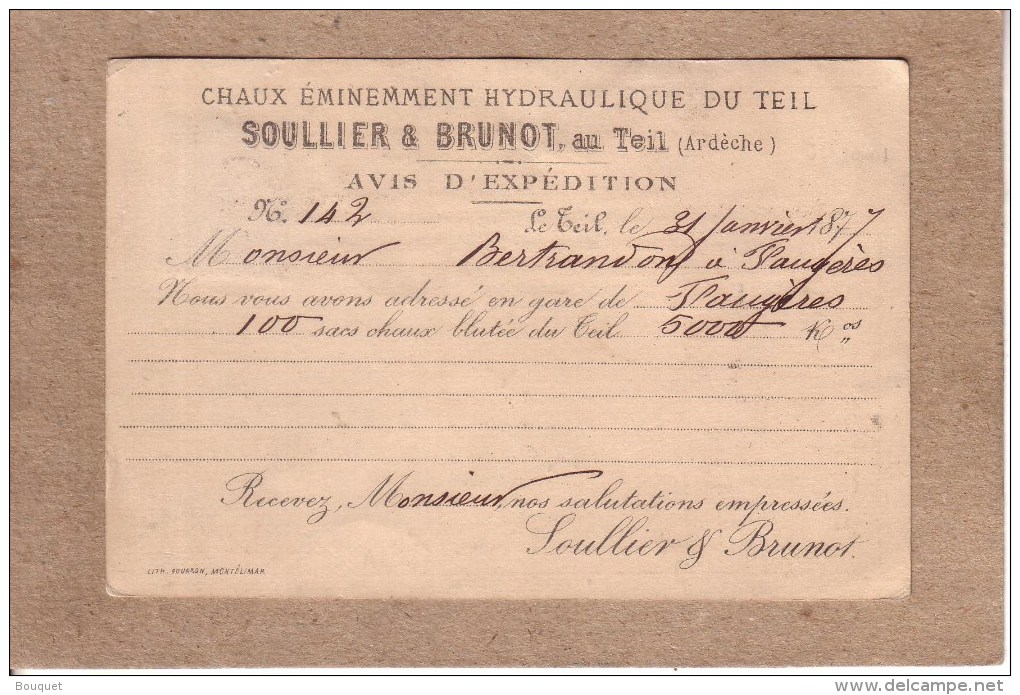 CHAUX ÉMINEMMENT HYDRAULIQUE DU TEIL
SOULLIER & BRUNOT, au Teil (Ardèche)
AVIS D'EXPÉDITION
N°. 142 Le Teil, le 31 Janvier 1877
Monsieur Bertrandon à Faugères
Nous vous avons adressé en gare de Faugères
100 sacs chaux blutée du Teil 5000 Kos
Recevez, Monsieur, nos salutations empressées.
Soullier & Brunot.
LITH. BOURRON, MONTÉLIMAR
Bouquet
www.delcampe.net